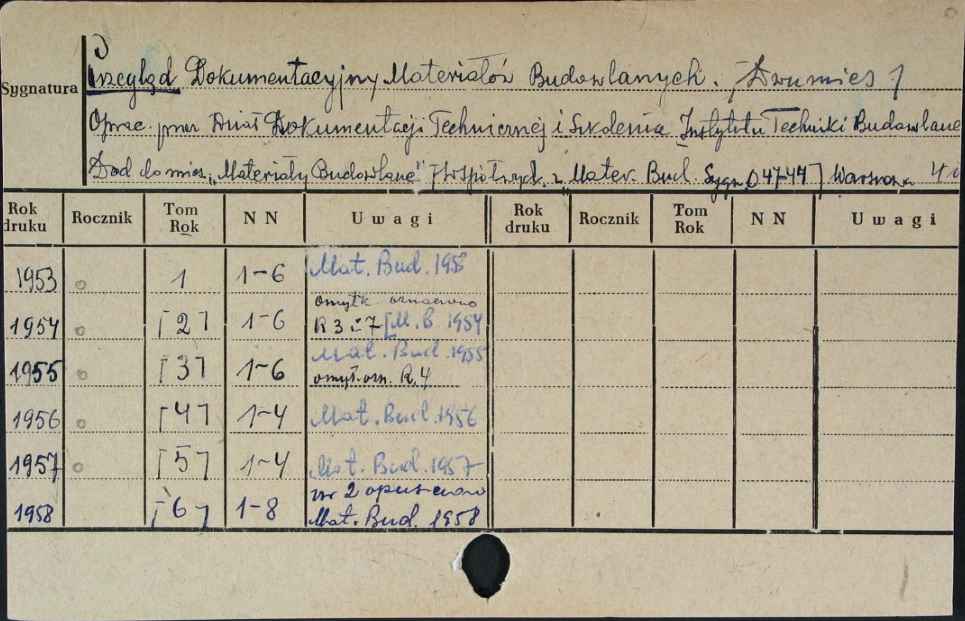 Sygnatura
Przegląd Dokumentacyjny Materiałów Budowlanych. /Dwumies/
Oprac. przez Dział Dokumentacji Technicznej i Szkolenia Instytutu Techniki Budowlane
Dod do mies. „Materiały Budowlane" [Współwyd. z „Mater. Bud. Sygn. 04747] Warszawa 4°
Rok druku Rocznik Tom Rok NN Uwagi Rok druku Rocznik Tom Rok NN Uwagi
1953 1 1-6 Mat. Bud. 1953
omyłk. oznaczono
1954 [2] 1-6 R 3 i 7 [M. B. 1954
Mat. Bud. 1955
1955 [3] 1-6 omył. ozn. R. 4
1956 [4] 1-4 Mat. Bud. 1956
1957 [5] 1-4 Mat. Bud. 1957
nr 2 opuszczono
1958 [6] 1-8 Mat. Bud. 1958